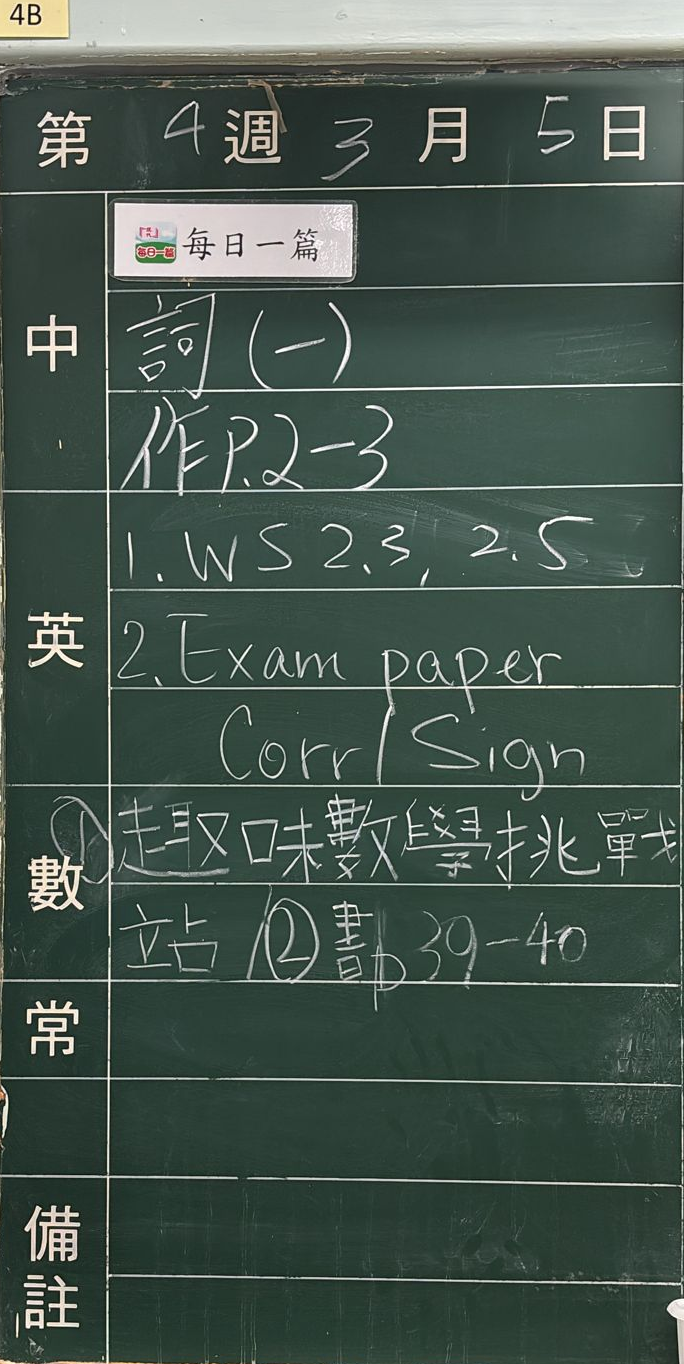 4B
第 4 週 3 月 5 日
中
每日一篇 每日一篇
詞(一)
作P.2-3
英
1. WS 2.3, 2.5
2. Exam paper
Corr/Sign
數
①趣味數學挑戰
站/②書p39-40
常
備註